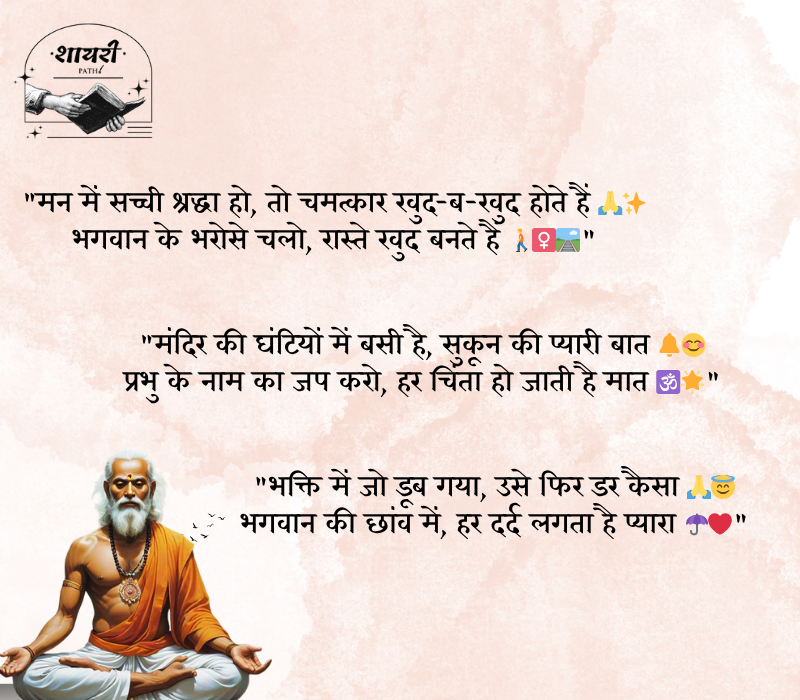 शायरी
PATH
"मन में सच्ची श्रद्धा हो, तो चमत्कार खुद-ब-खुद होते हैं 🙏✨
भगवान के भरोसे चलो, रास्ते खुद बनते हैं 🚶♀️🛤️"
"मंदिर की घंटियों में बसी है, सुकून की प्यारी बात 🔔😊
प्रभु के नाम का जप करो, हर चिंता हो जाती है मात 🕉️🌟"
"भक्ति में जो डूब गया, उसे फिर डर कैसा 🙏😇
भगवान की छांव में, हर दर्द लगता है प्यारा ☂️❤️"